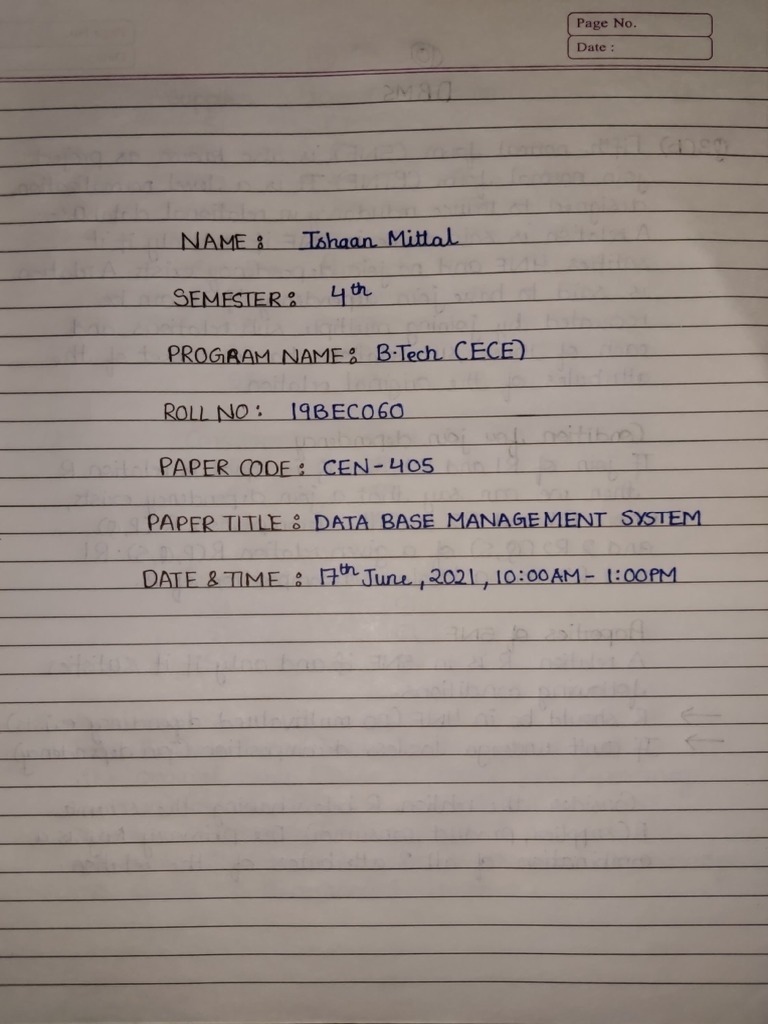 Page No.
Date :
NAME : Ishaan Mittal
SEMESTER : 4th
PROGRAM NAME : B.Tech (ECE)
ROLL NO : 19BEC060
PAPER CODE : CEN-405
PAPER TITLE : DATA BASE MANAGEMENT SYSTEM
DATE & TIME : 17th June, 2021, 10:00AM - 1:00PM